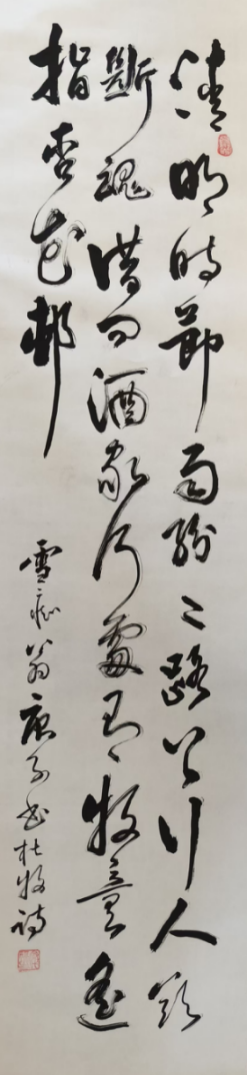 清明時節雨紛々路上行人欲
斷魂借問酒家何處有牧童遙
指杏花邨
雪痴翁庚子书杜牧詩